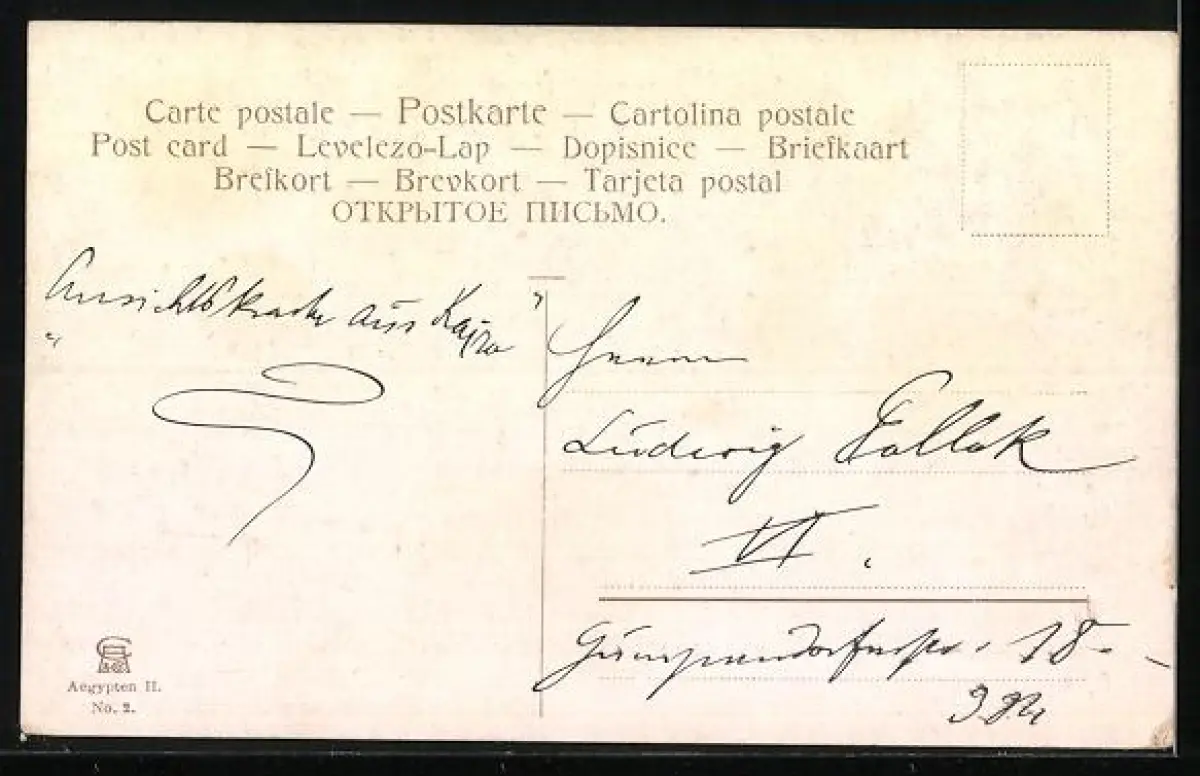 Carte postale — Postkarte — Cartolina postale
Post card — Levelezo-Lap — Dopisnice — Briefkaart
Brefkort — Brevkort — Tarjeta postal
ОТКРЫТОЕ ПИСЬМО.
aus Kairo
Herrn
Ludwig
VI.
Gumpendorferstr. 18.
Aegypten II.
No. 2.